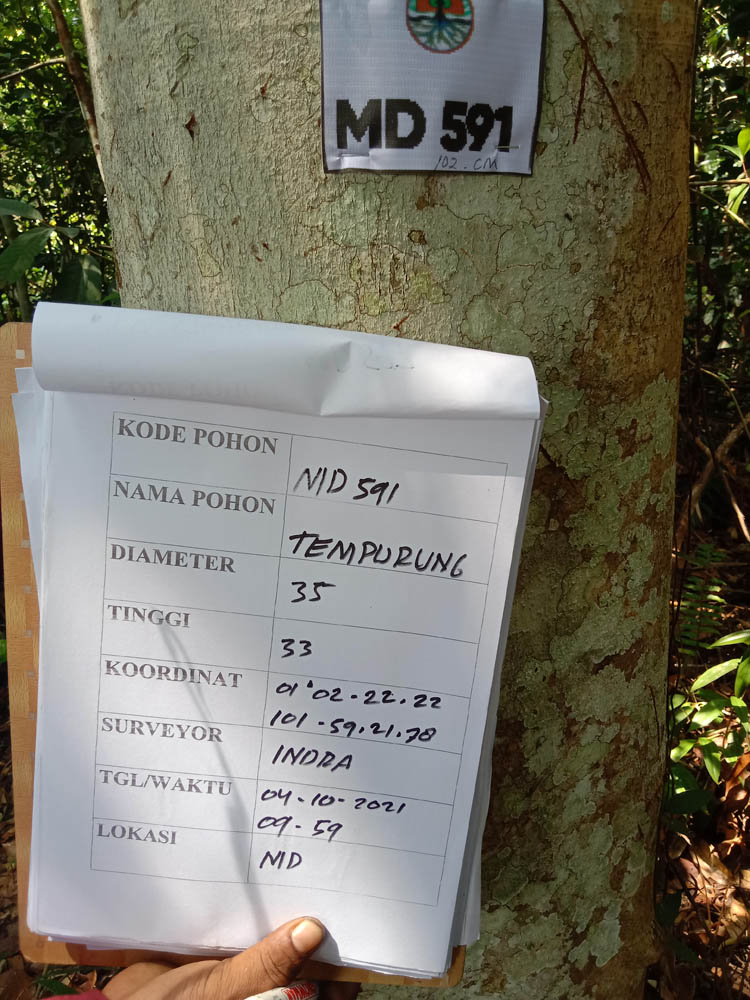 MD 591
102. CM
KODE POHON
MD 591
NAMA POHON
TEMPURUNG
DIAMETER
35
TINGGI
33
KOORDINAT
01°02.22.22
101.59.21.78
SURVEYOR
INDRA
TGL/WAKTU
04-10-2021
09-59
LOKASI
MD